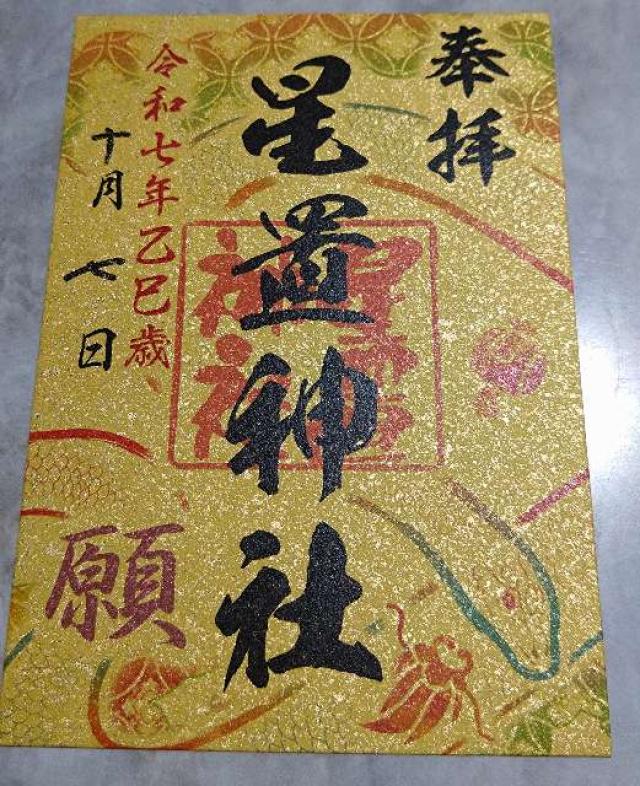 奉拝
星置神社
令和七年乙巳歳
十月七日
願
星置神社